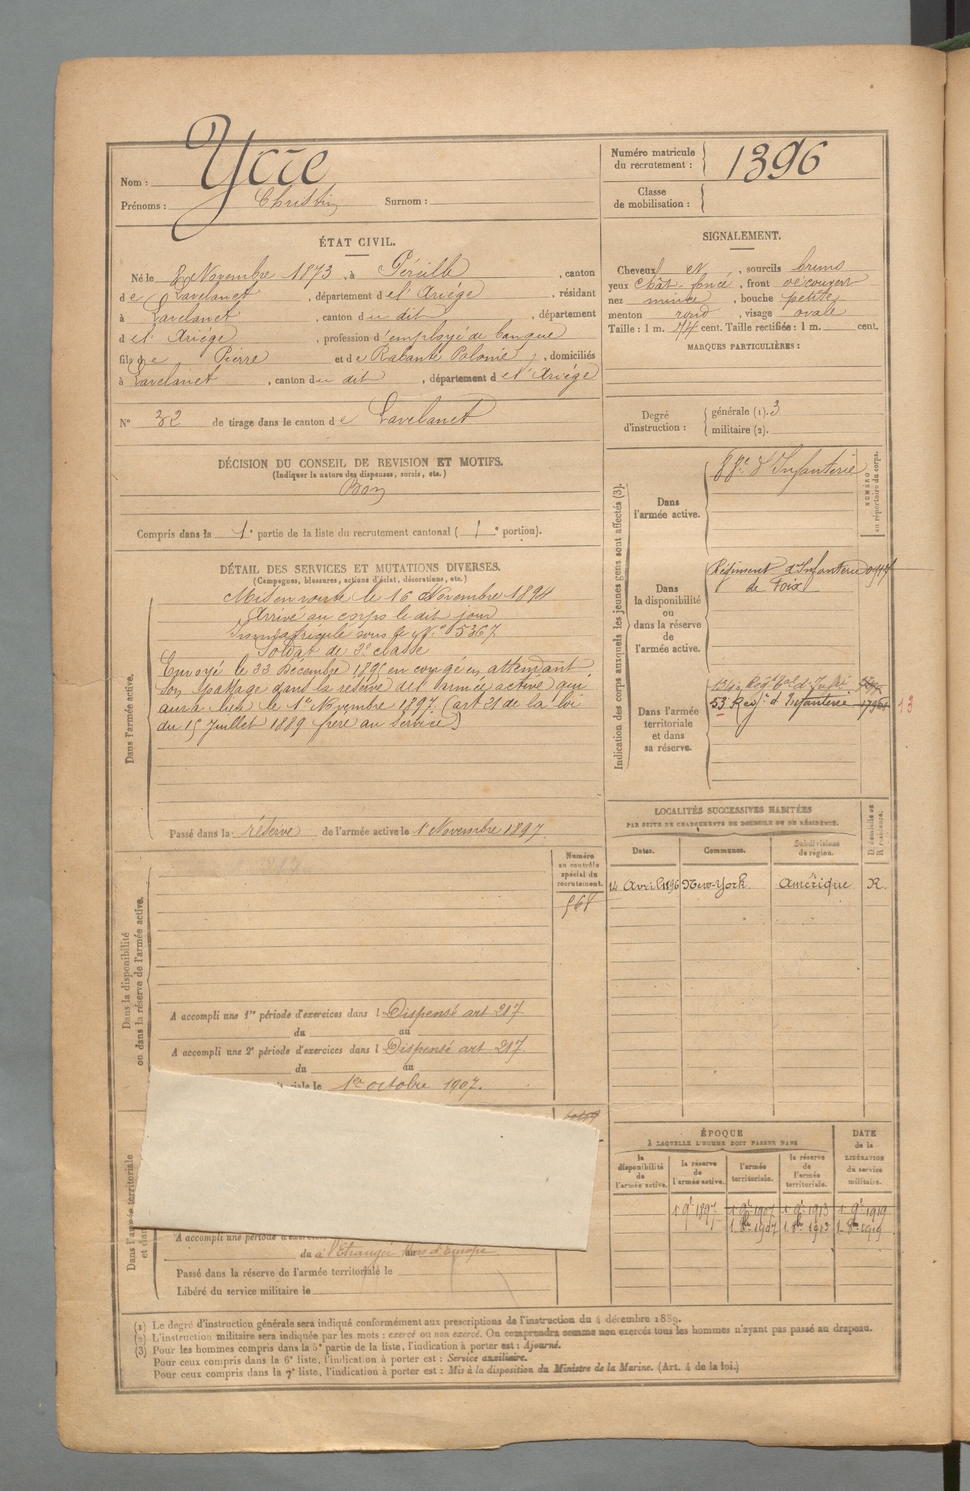 Nom : Ycre
Prénoms : Christin Surnom :
Numéro matricule du recrutement : 1396
Classe de mobilisation :
ÉTAT CIVIL.
Né le 2 Novembre 1873, à Péreille, canton
de Lavelanet, département de l'Ariége, résidant
à Lavelanet, canton du dit, département
de l'Ariége, profession d'employé de banque
fils de Pierre et de Rabant Polonie, domiciliés
à Lavelanet, canton du dit, département de l'Ariége
N° 32 de tirage dans le canton de Lavelanet
SIGNALEMENT.
Cheveux N, sourcils bruns
yeux chât. foncé, front découvert
nez mince, bouche petite
menton rond, visage ovale
Taille : 1 m. 74 cent. Taille rectifiée : 1 m. cent.
MARQUES PARTICULIÈRES :
Degré d'instruction : générale (1). 3
militaire (2).
DÉCISION DU CONSEIL DE REVISION ET MOTIFS.
(Indiquer la nature des dispenses, sursis, etc.)
Bon
Compris dans la 1e partie de la liste du recrutement cantonal ( 1e portion).
DÉTAIL DES SERVICES ET MUTATIONS DIVERSES.
(Campagnes, blessures, actions d'éclat, décorations, etc.)
Dans l'armée active.
Mis en route le 16 Novembre 1894
Arrivé au corps le dit jour
Immatriculé sous le N° 5367
Soldat de 2e classe
Envoyé le 23 Décembre 1895 en congé en attendant
son passage dans la réserve de l'armée active qui
aura lieu le 1er Novembre 1897. (art 21 de la loi
du 15 Juillet 1889 frère au service)
Passé dans la réserve de l'armée active le 1 Novembre 1897.
Indication des corps auxquels les jeunes gens sont affectés (3).
NUMÉRO au répertoire du corps.
Dans l'armée active.
88e d'Infanterie
Dans la disponibilité ou dans la réserve de l'armée active.
Régiment d'Infanterie
de Foix
Dans l'armée territoriale et dans sa réserve.
53 Regt d'Infanterie
13
LOCALITÉS SUCCESSIVES HABITÉES
PAR SUITE DE CHANGEMENTS DE DOMICILE OU DE RÉSIDENCE.
Dates. Communes. Subdivisions de région. D. domicile ou R. résidence.
14 Avril 1896 New-York. Amérique R.
Dans la disponibilité ou dans la réserve de l'armée active.
Numéro au contrôle spécial du recrutement.
568
A accompli une 1re période d'exercices dans l Dispensé art 217
du au
A accompli une 2e période d'exercices dans l Dispensé art 217
du au
1er octobre 1907.
Dans l'armée territoriale
A accompli une période d'exer
du à l'étranger au hors d'Europe
Passé dans la réserve de l'armée territoriale le
Libéré du service militaire le
ÉPOQUE
À LAQUELLE L'HOMME DOIT PASSER DANS
DATE de la LIBÉRATION du service militaire.
la disponibilité de l'armée active. la réserve de l'armée active. l'armée territoriale. la réserve de l'armée territoriale.
1 9e 1897 1 9e 1907 1 9e 1913 1 9e 1919
1 8bre 1907 1 8bre 1913 1 8bre 1919
(1) Le degré d'instruction générale sera indiqué conformément aux prescriptions de l'instruction du 4 décembre 1889.
(2) L'instruction militaire sera indiquée par les mots : exercé ou non exercé. On comprendra comme non exercés tous les hommes n'ayant pas passé au drapeau.
(3) Pour les hommes compris dans la 5e partie de la liste, l'indication à porter est : Ajourné.
Pour ceux compris dans la 6e liste, l'indication à porter est : Service auxiliaire.
Pour ceux compris dans la 7e liste, l'indication à porter est : Mis à la disposition du Ministre de la Marine. (Art. 4 de la loi.)